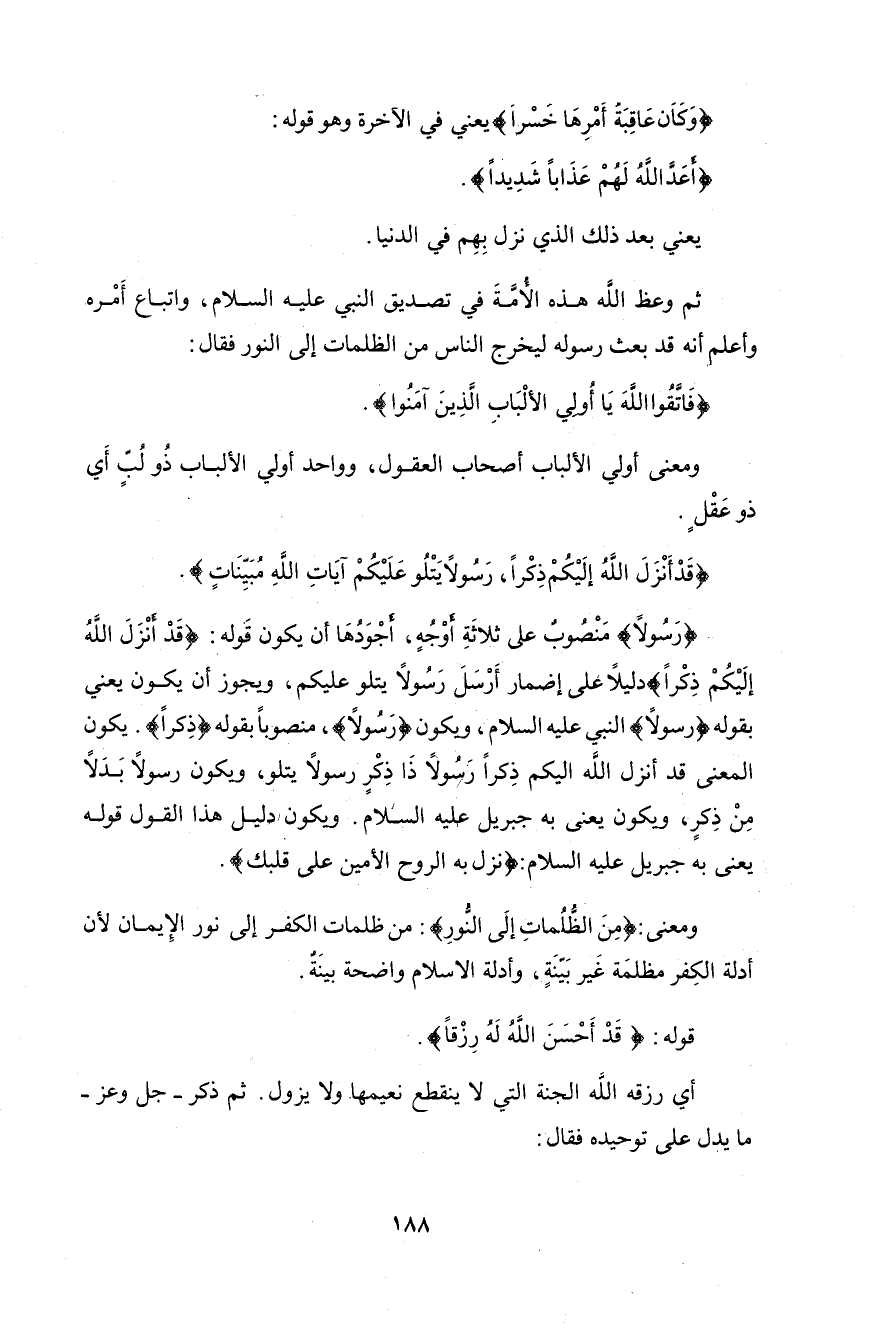 ﴿وَكَانَ عَاقِبَةُ أَمْرِهَا خَسْراً﴾ يعني في الآخرة وهو قوله:
﴿أَعَدَّ اللَّهُ لَهُمْ عَذَاباً شَدِيداً﴾.
يعني بعد ذلك الذي نزل بِهِم في الدنيا.
ثم وعظ اللَّه هـذه الأُمَّـةَ في تصـديق النبي عليـه السـلام، واتبـاع أَمْـره
وأعلم أنه قد بعث رسوله ليخرج الناس من الظلمات إلى النور فقال:
﴿فَاتَّقُوا اللَّهَ يَا أُولِي الألْبَابِ الَّذِينَ آمَنُوا﴾.
ومعنى أولي الألباب أصحاب العقـول، وواحد أولي الألبـاب ذُو لُبٍّ أَي
ذو عَقْلٍ.
﴿قَدْ أَنْزَلَ اللَّهُ إِلَيْكُمْ ذِكْراً، رَسُولاً يَتْلُو عَلَيْكُمْ آيَاتِ اللَّهِ مُبَيِّنَاتٍ﴾.
﴿رَسُولاً﴾ مَنْصُوبٌ على ثلاثَةِ أَوْجُهٍ، أَجْوَدُهَا أن يكون قَوله: ﴿قَدْ أَنْزَلَ اللَّهُ
إِلَيْكُمْ ذِكْراً﴾ دليلاً على إضمار أَرْسَلَ رَسُولاً يتلو عليكم، ويجوز أن يكـون يعني
بقوله ﴿رسولاً﴾ النبي عليه السلام، ويكون ﴿رَسُولاً﴾، منصوباً بقوله ﴿ذِكراً﴾. يكون
المعنى قد أنزل اللَّه اليكم ذِكراً رَسُولاً ذَا ذِكْرٍ رسولاً يتلو، ويكون رسولاً بَـدَلاً
مِنْ ذِكرٍ، ويكون يعنى به جبريل عليه السلام. ويكون دليـل هذا القـول قولـه
يعنى به جبريل عليه السلام: ﴿نزل به الروح الأمين على قلبك﴾.
ومعنى: ﴿مِنَ الظُّلُمَاتِ إِلَى النُّورِ﴾: من ظلمات الكفـر إلى نور الإِيمـان لأن
أدلة الكِفر مظلمَة غَير بَيِّنَةٍ، وأدلة الاسلام واضحة بينَةٌ.
قوله: ﴿ قَدْ أَحْسَنَ اللَّهُ لَهُ رِزْقاً﴾.
أي رزقه اللَّه الجنة التي لا ينقطع نعيمها ولا يزول. ثم ذكر ـ جل وعز ـ
ما يدل على توحيده فقال:
١٨٨